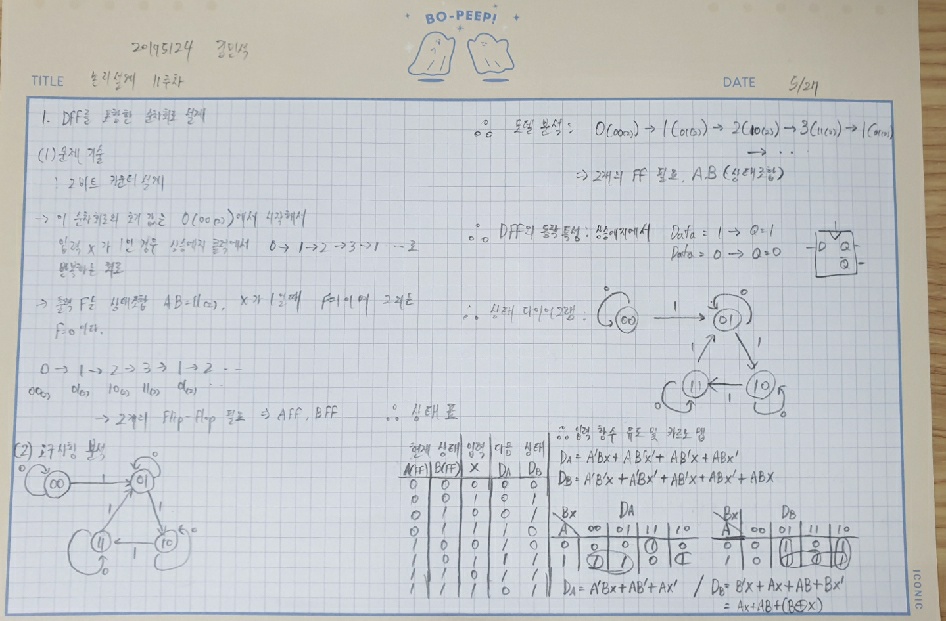 BO-PEEP!
20175124 김민석
TITLE 논리설계 11주차
DATE 5/27
1. DFF를 포함한 순차회로 설계
(1) 문제 기술
: 2비트 카운터 설계
→ 이 순차회로의 초기 값은 0(00(2))에서 시작해서
입력 x가 1인 경우 상승에지 클럭에서 0→1→2→3→1 ...로
반복하는 회로
→ 출력 F는 상태조합 AB=11(2), x가 1일때 F=1이며 그외는
F=0이다.
0→1→2→3→1→2 ...
00(2) 01(2) 10(2) 11(2) 01(2) ...
→ 2개의 Flip-Flop 필요 ⇒ AFF, BFF
(2) 요구사항 분석
00 1 01 0
1 1
11 1 10 0
0
∴ 모델 분석: 0(00(2)) → 1(01(2)) → 2(10(2)) → 3(11(2)) → 1(01(2))
→ ...
⇒ 2개의 FF 필요, AB (상태조합)
∴ DFF의 동작특성: 상승에지에서 Data = 1 → Q=1
Data = 0 → Q=0
D Q
Q̅
∴ 상태 다이어그램:
0 00 1 01 0
1 1
11 1 10
0 0
∴ 상태 표
현재 상태 입력 다음 상태
A(FF) B(FF) X DA DB
0 0 0 0 0
0 0 1 0 1
0 1 0 0 1
0 1 1 1 0
1 0 0 1 0
1 0 1 1 1
1 1 0 1 1
1 1 1 0 1
∴ 입력 함수 유도 및 카르노 맵
DA = A'Bx + AB'x' + AB'x + ABx'
DB = A'B'x + A'Bx' + AB'x + ABx' + ABx
Bx DA
A 00 01 11 10
0 0 0 1 0
1 1 1 0 1
DA = A'Bx + AB' + Ax'
Bx DB
A 00 01 11 10
0 0 1 0 1
1 0 1 1 1
/ DB = B'x + Ax + AB + Bx'
= Ax + AB + (B⊕x)
ICONIC